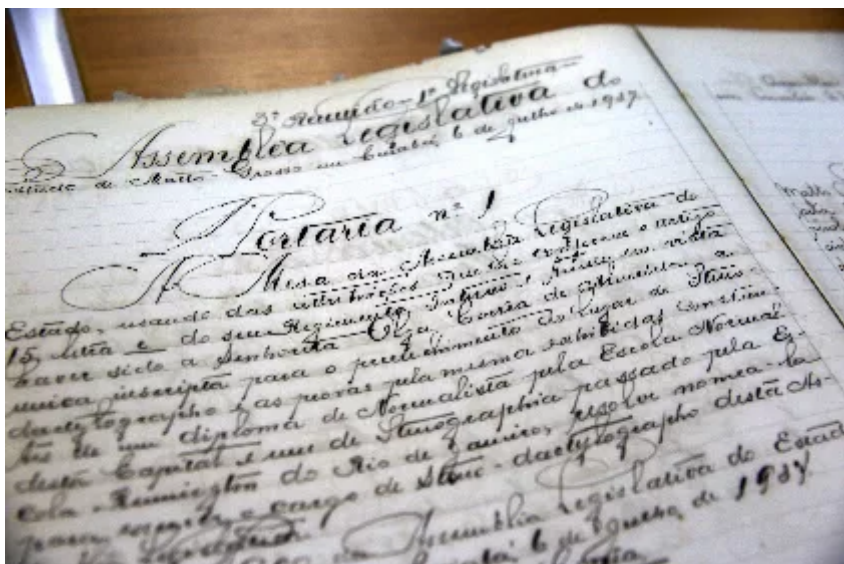 3ª Reunião - 1ª Legislatura
Assemblea Legislativa do
Estado de Matto-Grosso em Cuiabá, 6 de Julho de 1937
Portaria nº 1
A Mesa da Assembléa Legislativa do
Estado, usando das attribuições que lhe confere o artigo
15, letra e do seu Regimento Interno e tendo em vista
haver sido a Senhorita Olga Corrêa de Almeida a
unica inscripta para o preenchimento do lugar de Steno-
dactylographo e as provas pela mesma exhibidas constan-
tes de um diploma de Normalista pela Escola Normal
desta Capital e um de Stenographia passado pela Es-
cola Remington do Rio de Janeiro, resolve nomea-la
para exercer o cargo de Steno-dactylographo desta As-
Legislativa do Estado
6 de Julho de 1937
Matto